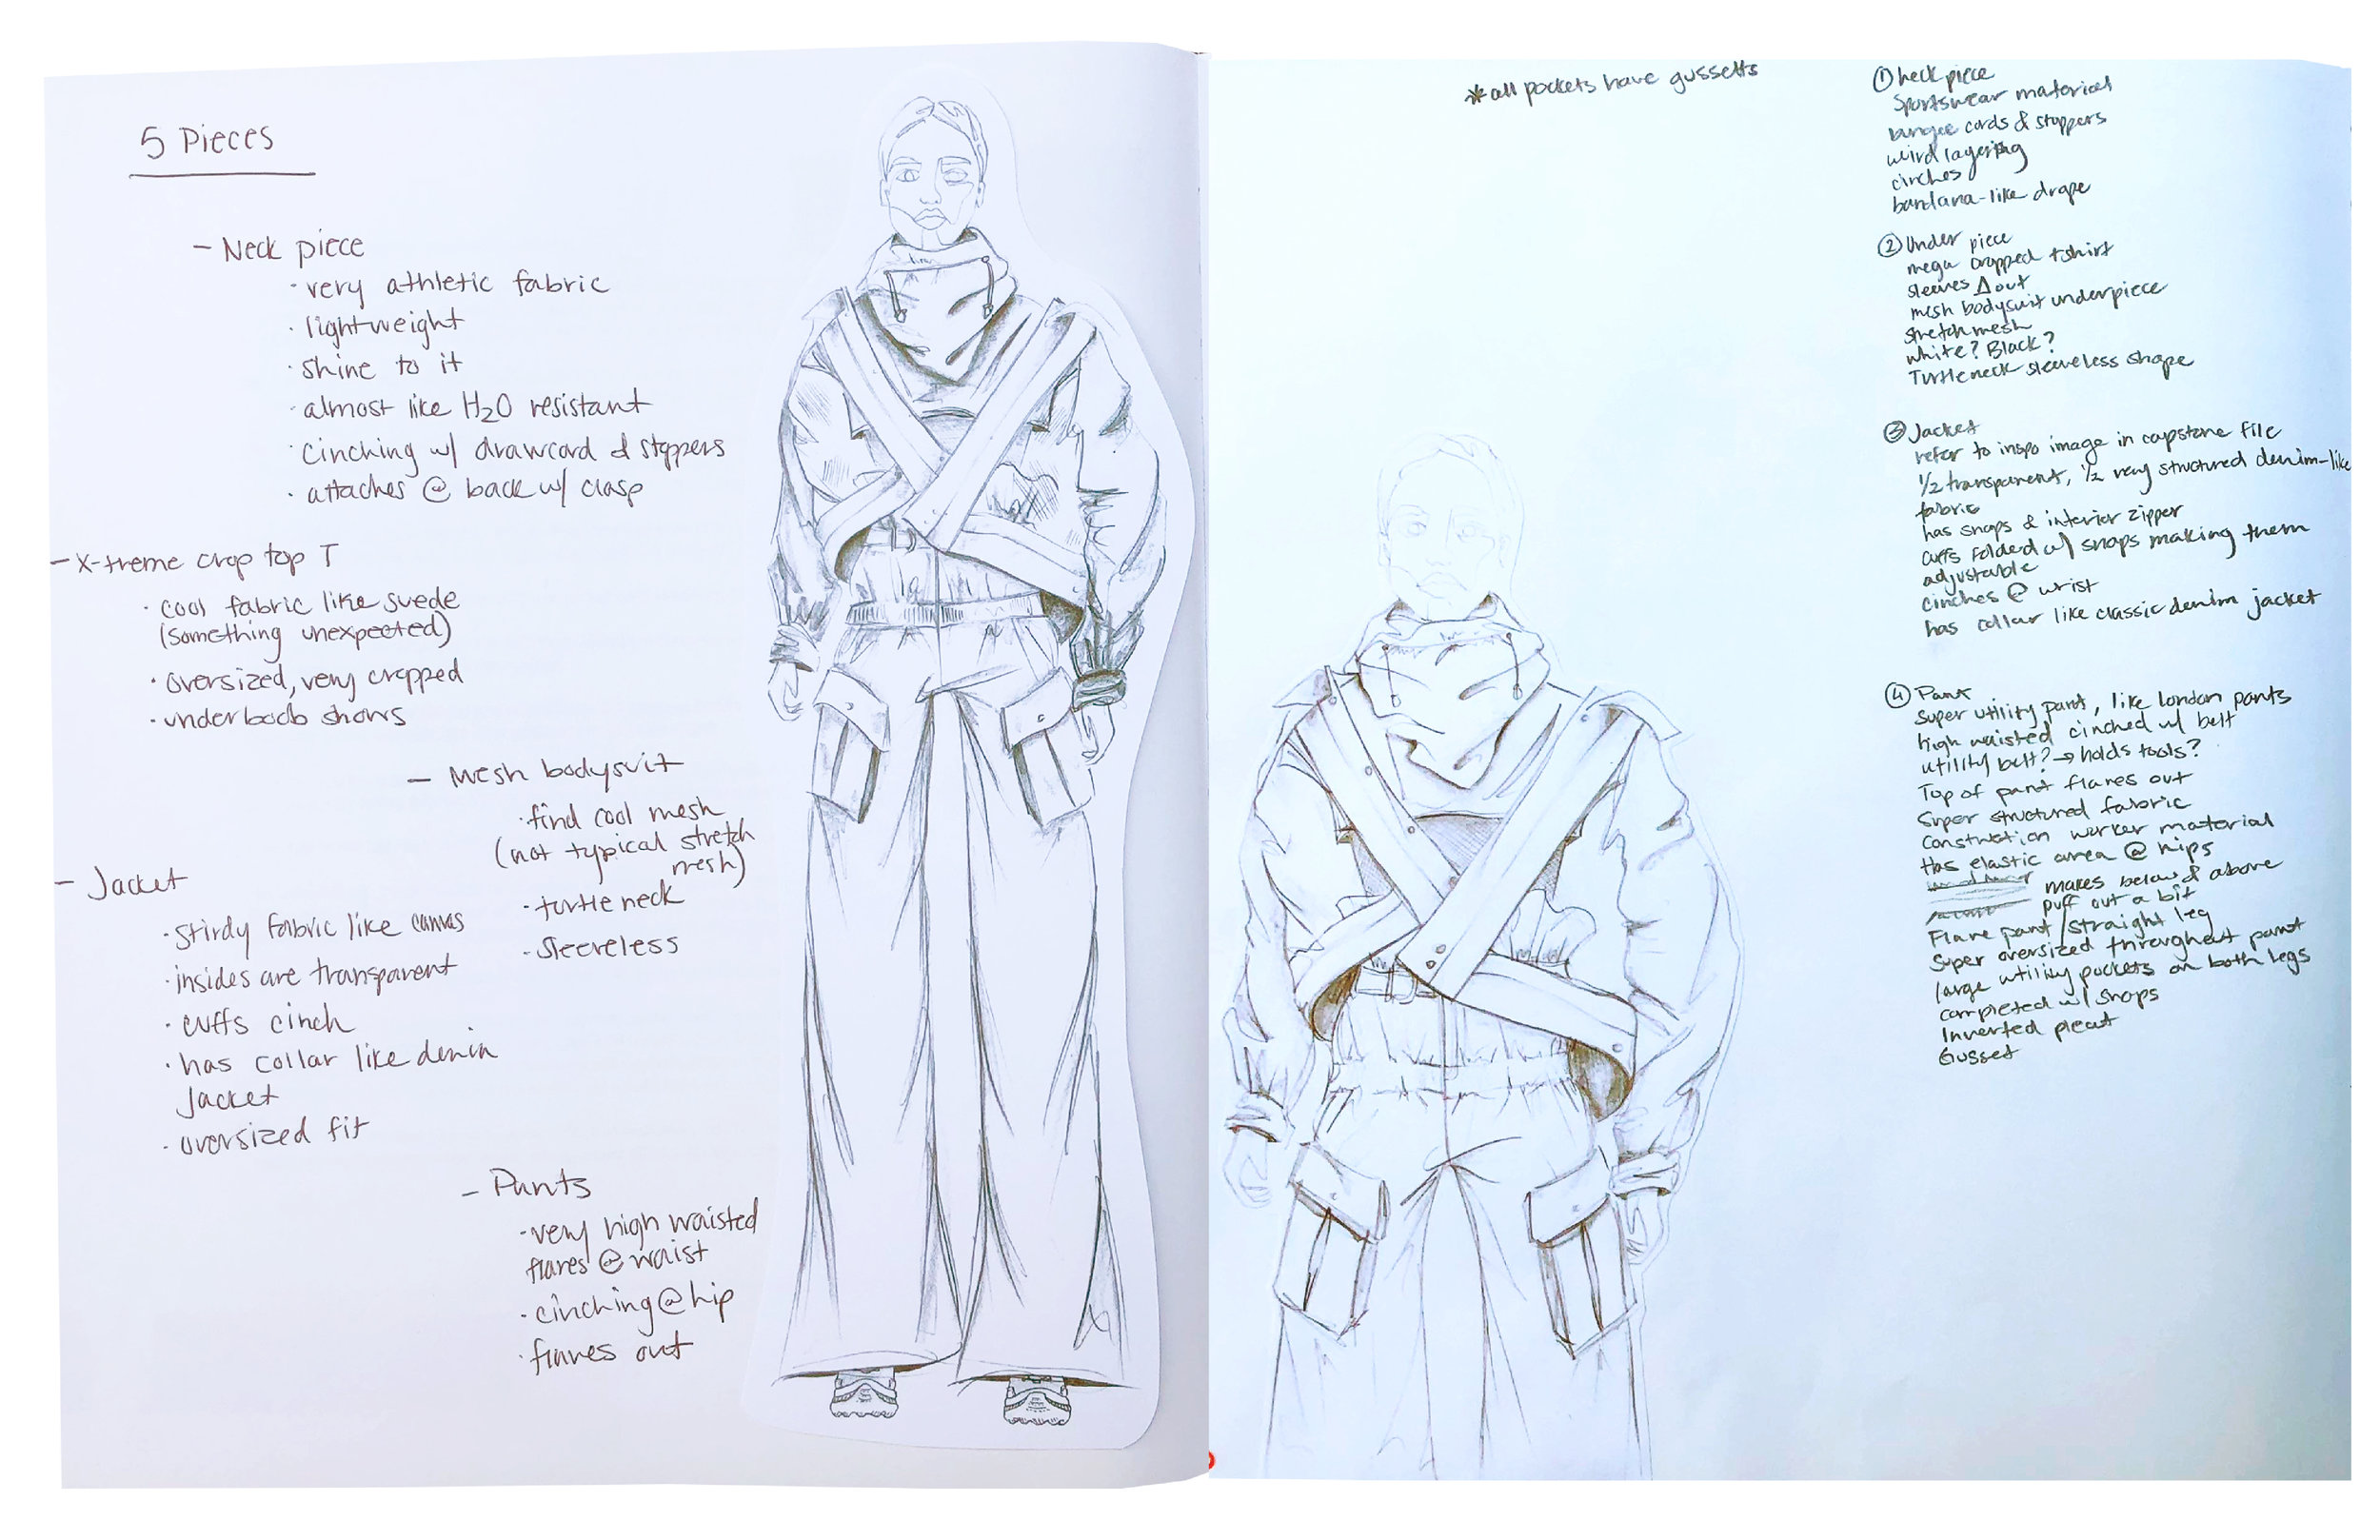 5 Pieces
- Neck piece
· very athletic fabric
· lightweight
· shine to it
· almost like H2O resistant
· cinching w/ drawcord & stoppers
· attaches @ back w/ clasp
- X-treme crop top T
· cool fabric like suede
(something unexpected)
· oversized, very cropped
· underboob shows
- Mesh bodysuit
· find cool mesh
(not typical stretch
mesh)
· turtle neck
- Sleeveless
- Jacket
· Stirdy fabric like canvas
· insides are transparent
· cuffs cinch
· has collar like denim
Jacket
· oversized fit
- Pants
· very high waisted
flares @ waist
· cinching @ hip
· flares out
* all pockets have gussetts
① Neck piece
Sportswear material
bungee cords & stoppers
weird layering
cinches
bandana-like drape
② Under piece
mega cropped tshirt
sleeves Δ out
mesh bodysuit underpiece
stretch mesh
white? Black?
Turtleneck sleeveless shape
③ Jacket
refer to inspo image in capstone file
1/2 transparent, 1/2 very structured denim-like
fabric
has snaps & interior zipper
cuffs folded w/ snaps making them
adjustable
cinches @ wrist
has collar like classic denim jacket
④ Pant
Super utility pant, like london pants
high waisted cinched w/ belt
utility belt? → holds tools?
Top of pant flares out
Super structured fabric
Construction worker material
Has elastic area @ hips
makes below & above
puff out a bit
Flare pant/straight leg
Super oversized throughout pant
large utility pockets on both legs
completed w/ snaps
Inverted pleat
Gusset